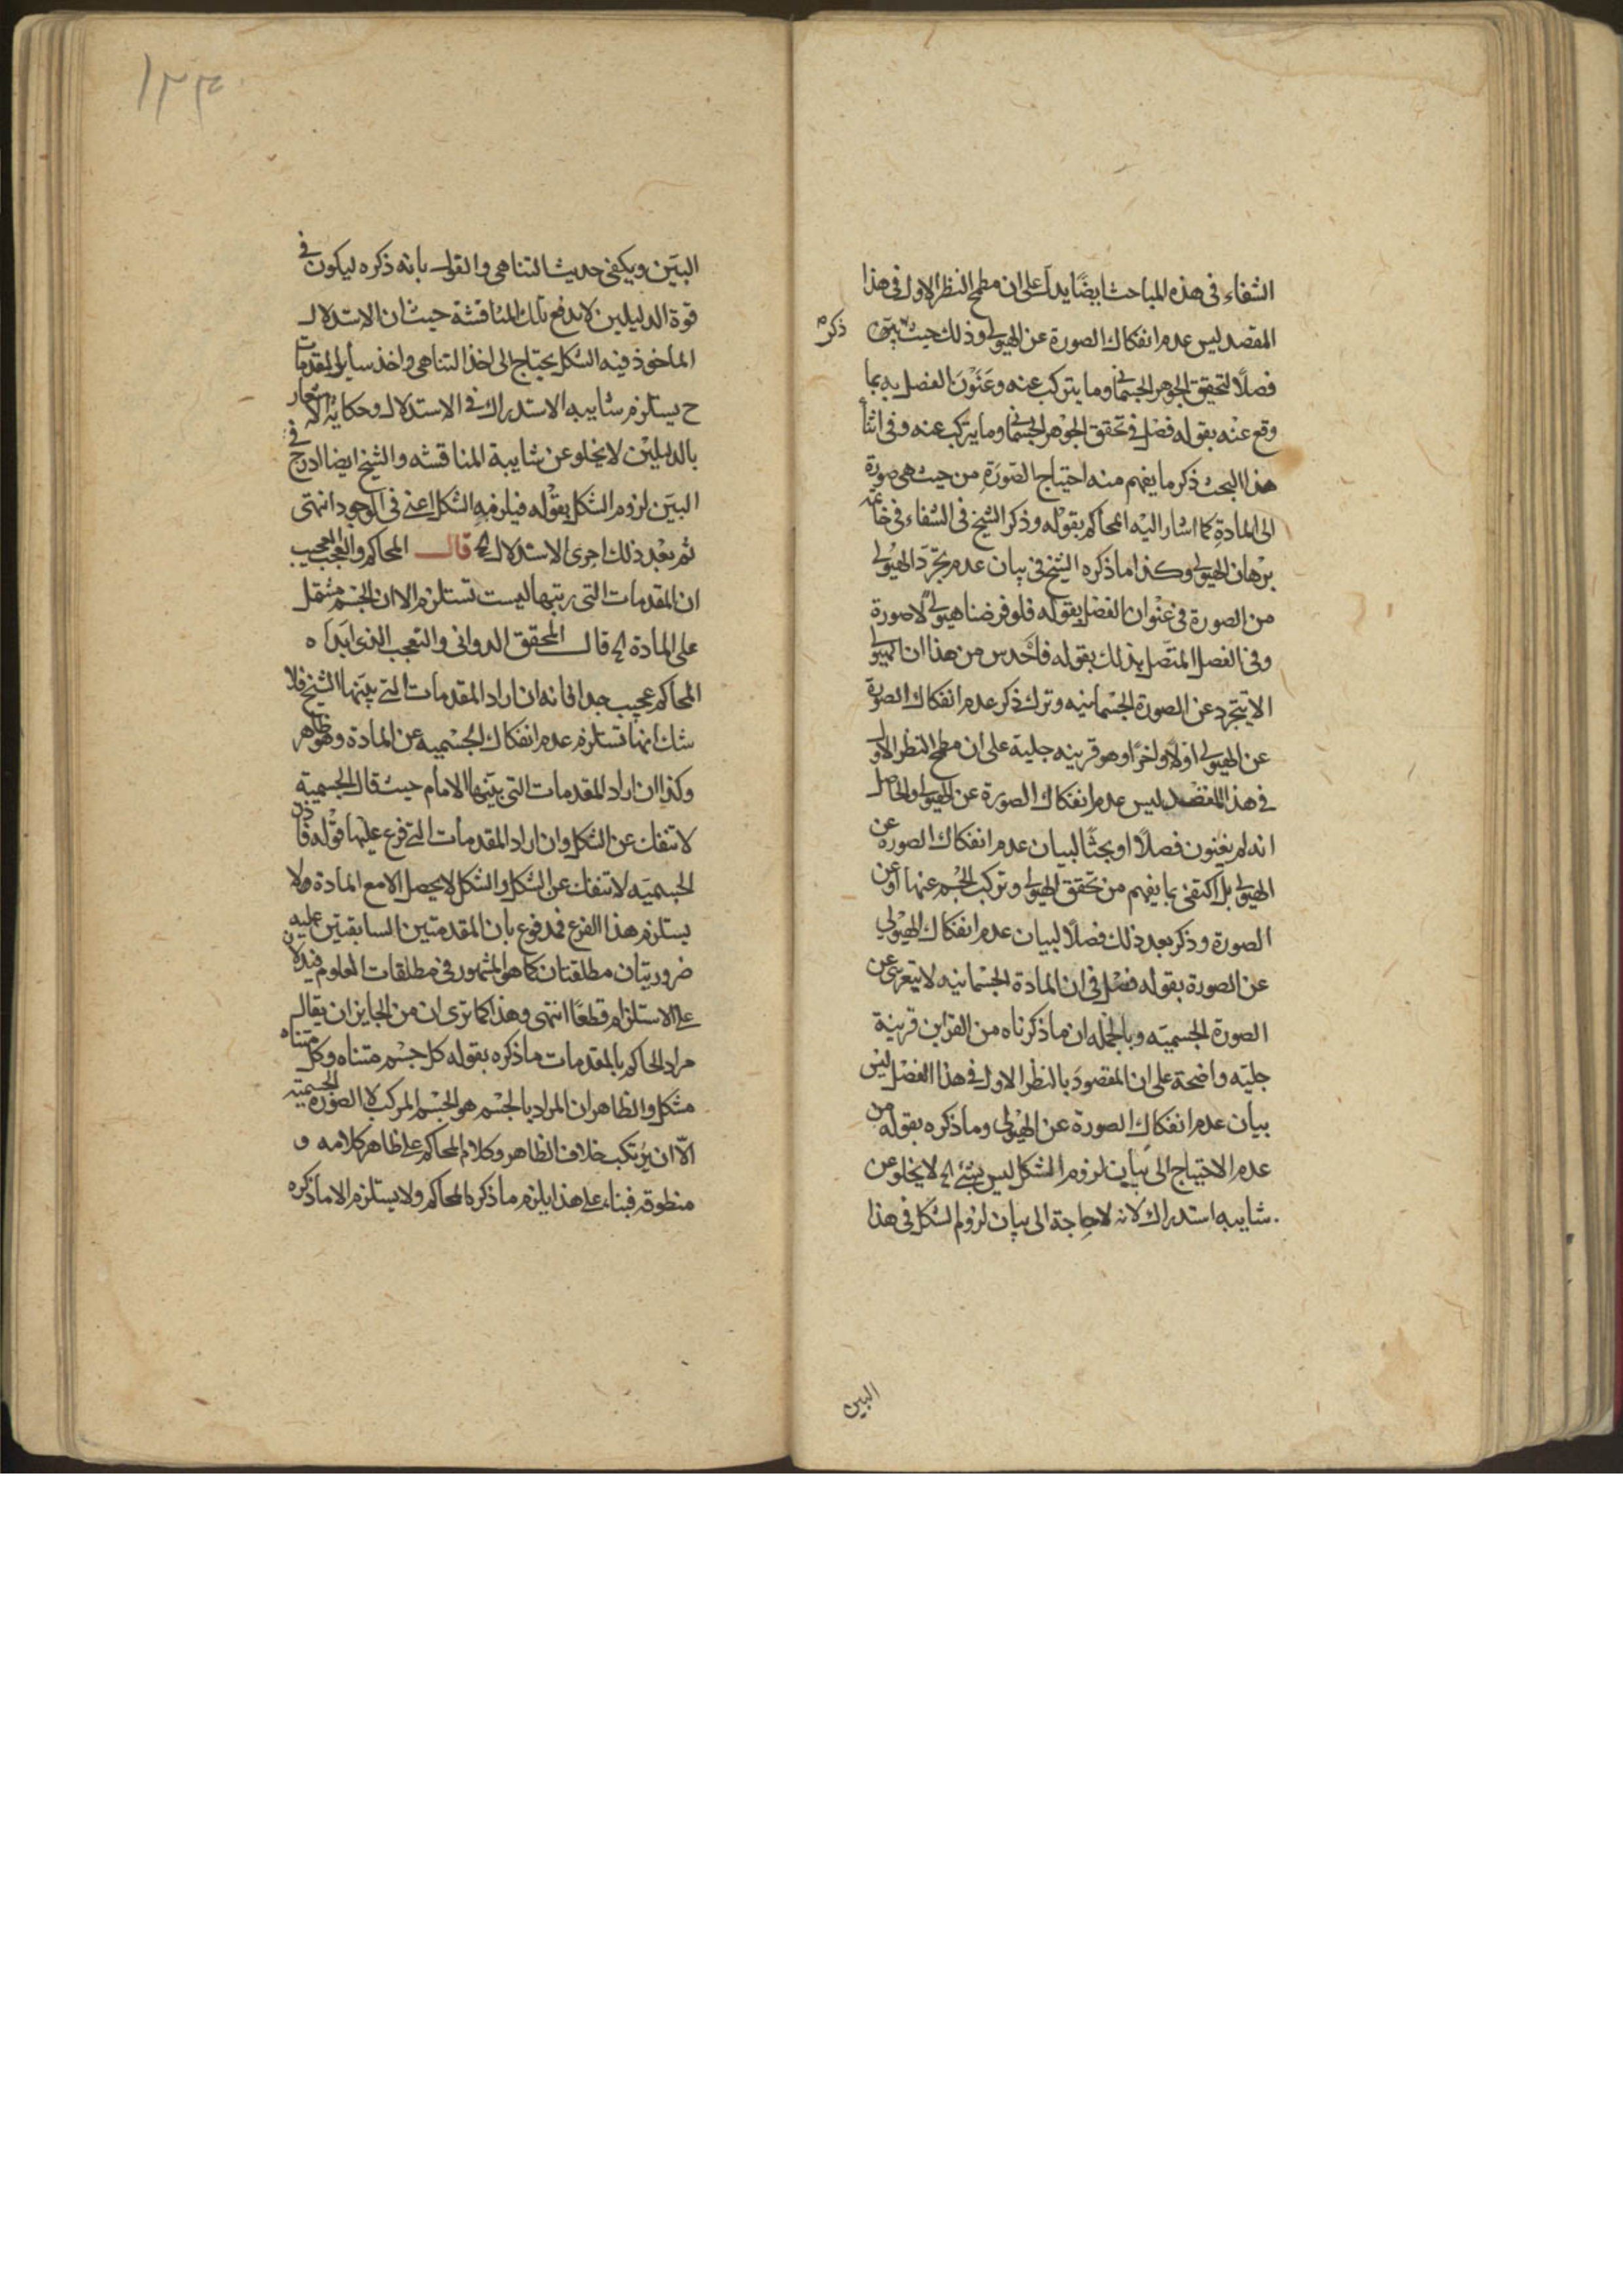 الشفاء في هذه المباحث ايضًا يدل على ان مطمح النظر الاول في هذا
المقصد ليس عدم انفكاك الصورة عن الهيولى وذلك حيث
ذكر
فصلًا لتحقيق الجوهر الجسماني وما يتركب عنه وعَنْوَنَ الفصل به بما
وقع عنه بقوله فصل في تحقق الجوهر الجسماني وما يتركب عنه وفي اثنا
هذا البحث ذكر ما يفهم منه احتياج الصورَةِ من حيث هي صورة
الى المادةِ كما اشار اليه المحاكم بقوله وذكر الشيخ في الشفاء في خاتمه
برهان الهيولى وكذا ما ذكره الشيخ في بيان عدم تجرّد الهيولى
من الصورة في عنوان الفصل بقوله فلو فرضنا هيولى لا صورة
وفي الفصل المتصل بذلك بقوله فاحدس من هذا ان الهيولى
لا يتجرد عن الصورة الجسمانيه وترك ذكر عدم انفكاك الصورة
عن الهيولى اولًا واخرًا وهو قرينه جلية على ان مطمح النظر الاول
في هذا المقصد ليس عدم انفكاك الصورة عن الهيولى والحاصل
انه لم يعنون فصلًا او بحثًا لبيان عدم انفكاك الصورة عن
الهيولى بل اكتفى بما يفهم من تحقق الهيولى وتركب الجسم عنها وعن
الصورة وذكر بعد ذلك فصلًا لبيان عدم انفكاك الهيولى
عن الصورة بقوله فصل في ان المادة الجسمانيه لا تتعرى عن
الصورة الجسميّه وبالجمله ان ما ذكرناه من القراين قرينة
جليّه واضحة على ان المقصودَ بالنظر الاول في هذا الفصل ليس
بيان عدم انفكاك الصورة عن الهيولى وما ذكره بقوله من
عدم الاحتياج الى بيان لزوم الشكل ليس بشئ الخ لا يخلو عن
شايبه استدراك لانه لا حاجة الى بيان لزوم الشكل في هذا
البين
١٣٣
البيّن ويكفي حديث التناهي والقول بانه ذكره ليكون في
قوة الدليلين لا يدفع تلك المناقشة حيث ان الاستدلال
الماخوذ فيه الشكل يحتاج الى اخذ التناهي واخذ ساير المقدمات
ح يستلزم شايبه الاستدراك في الاستدلال وحكاية الاشعار
بالدليلين لا يخلو عن شايبة المناقشه والشيخ ايضا ادرج في
البيّن لزوم الشكل بقوله فيلزمه الشكل اعني في الوجود انتهى
ثم بعد ذلك اجرى الاستدلال الخ قال المحاكم والعجب العجيب
ان المقدمات التي رتبها ليست تستلزم الا ان الجسم مشتمل
على المادة الخ قال المحقق الدواني والتعجب الذي ابداه
المحاكم عجيب جدا فانه ان اراد المقدمات التي بيّنها الشيخ فلا
شك انها تستلزم عدم انفكاك الجسميه عن المادة وهو ظاهر
وكذا ان اراد المقدمات التي بيّنها الامام حيث قال الجسمية
لا تنفك عن الشكل وان اراد المقدمات التي فرع عليها قوله فاذن
الجسميّه لا تنفك عن الشكل والشكل لا يحصل الا مع المادة ولا
يستلزم هذا الفرع فمدفوع بان المقدمتين السابقتين عليه
ضروريتان مطلقتان كما هو المشهور في مطلقات العلوم فيدلان
على الاستلزام قطعًا انتهى وهذا كما ترى ان من الجايز ان يقال
مراد المحاكم بالمقدمات ما ذكره بقوله كل جسم متناه وكل متناه
مشكل والظاهر ان المراد بالجسم هو الجسم المركب لا الصورة الجسميّه
الّا ان يرتكب خلاف الظاهر وكلام المحاكم على ظاهر كلامه و
منطوقه فبناء على هذا يلزم ما ذكره المحاكم ولا يستلزم الا ما ذكره